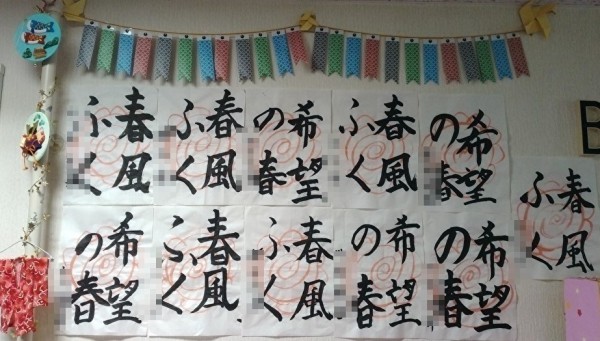 春風
ふく
春風
ふく
希望
の春
春風
ふく
希望
の春
春風
ふく
希望
の春
春風
ふく
春風
ふく
希望
の春
希望
の春